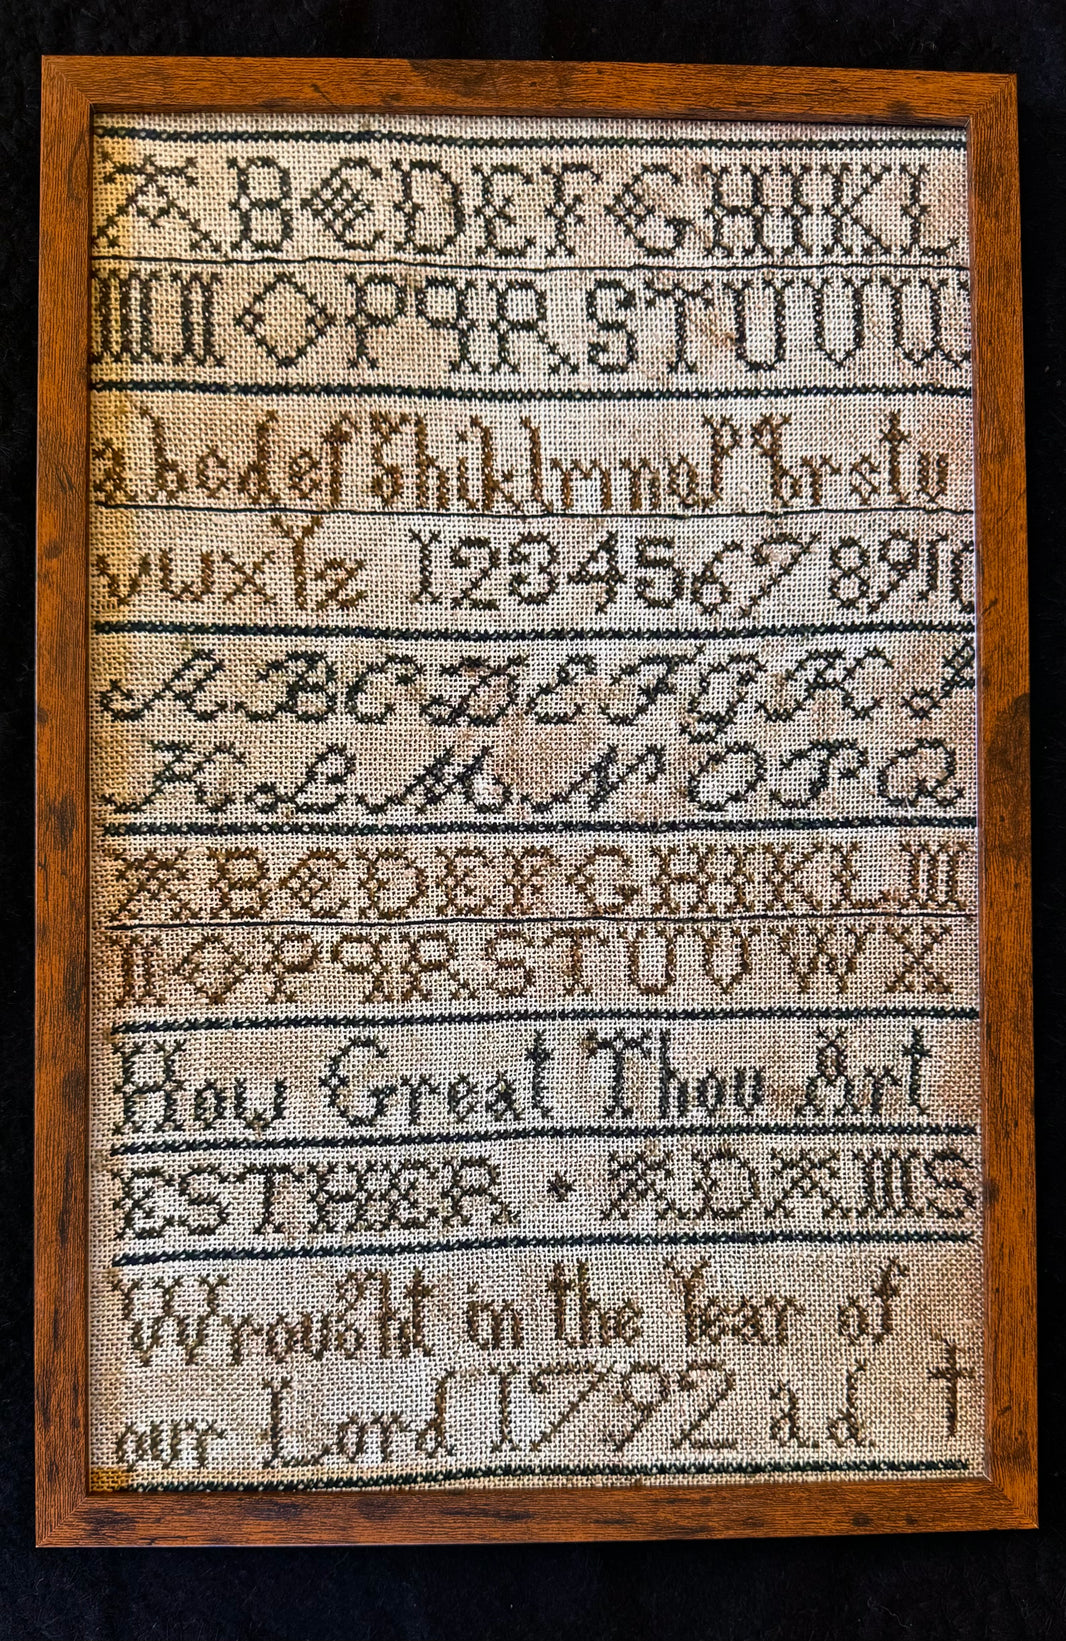 A B C D E F G H I K L
M N O P Q R S T U V W
a b c d e f g h i k l m n o p q r s t u
v w x y z 1 2 3 4 5 6 7 8 9 10
A B C D E F G H I
K L M N O P Q
A B C D E F G H I K L M
N O P Q R S T U V W X
How Great Thou Art
ESTHER · ADAMS
Wrought in the Year of
our Lord 1792 a.d. †